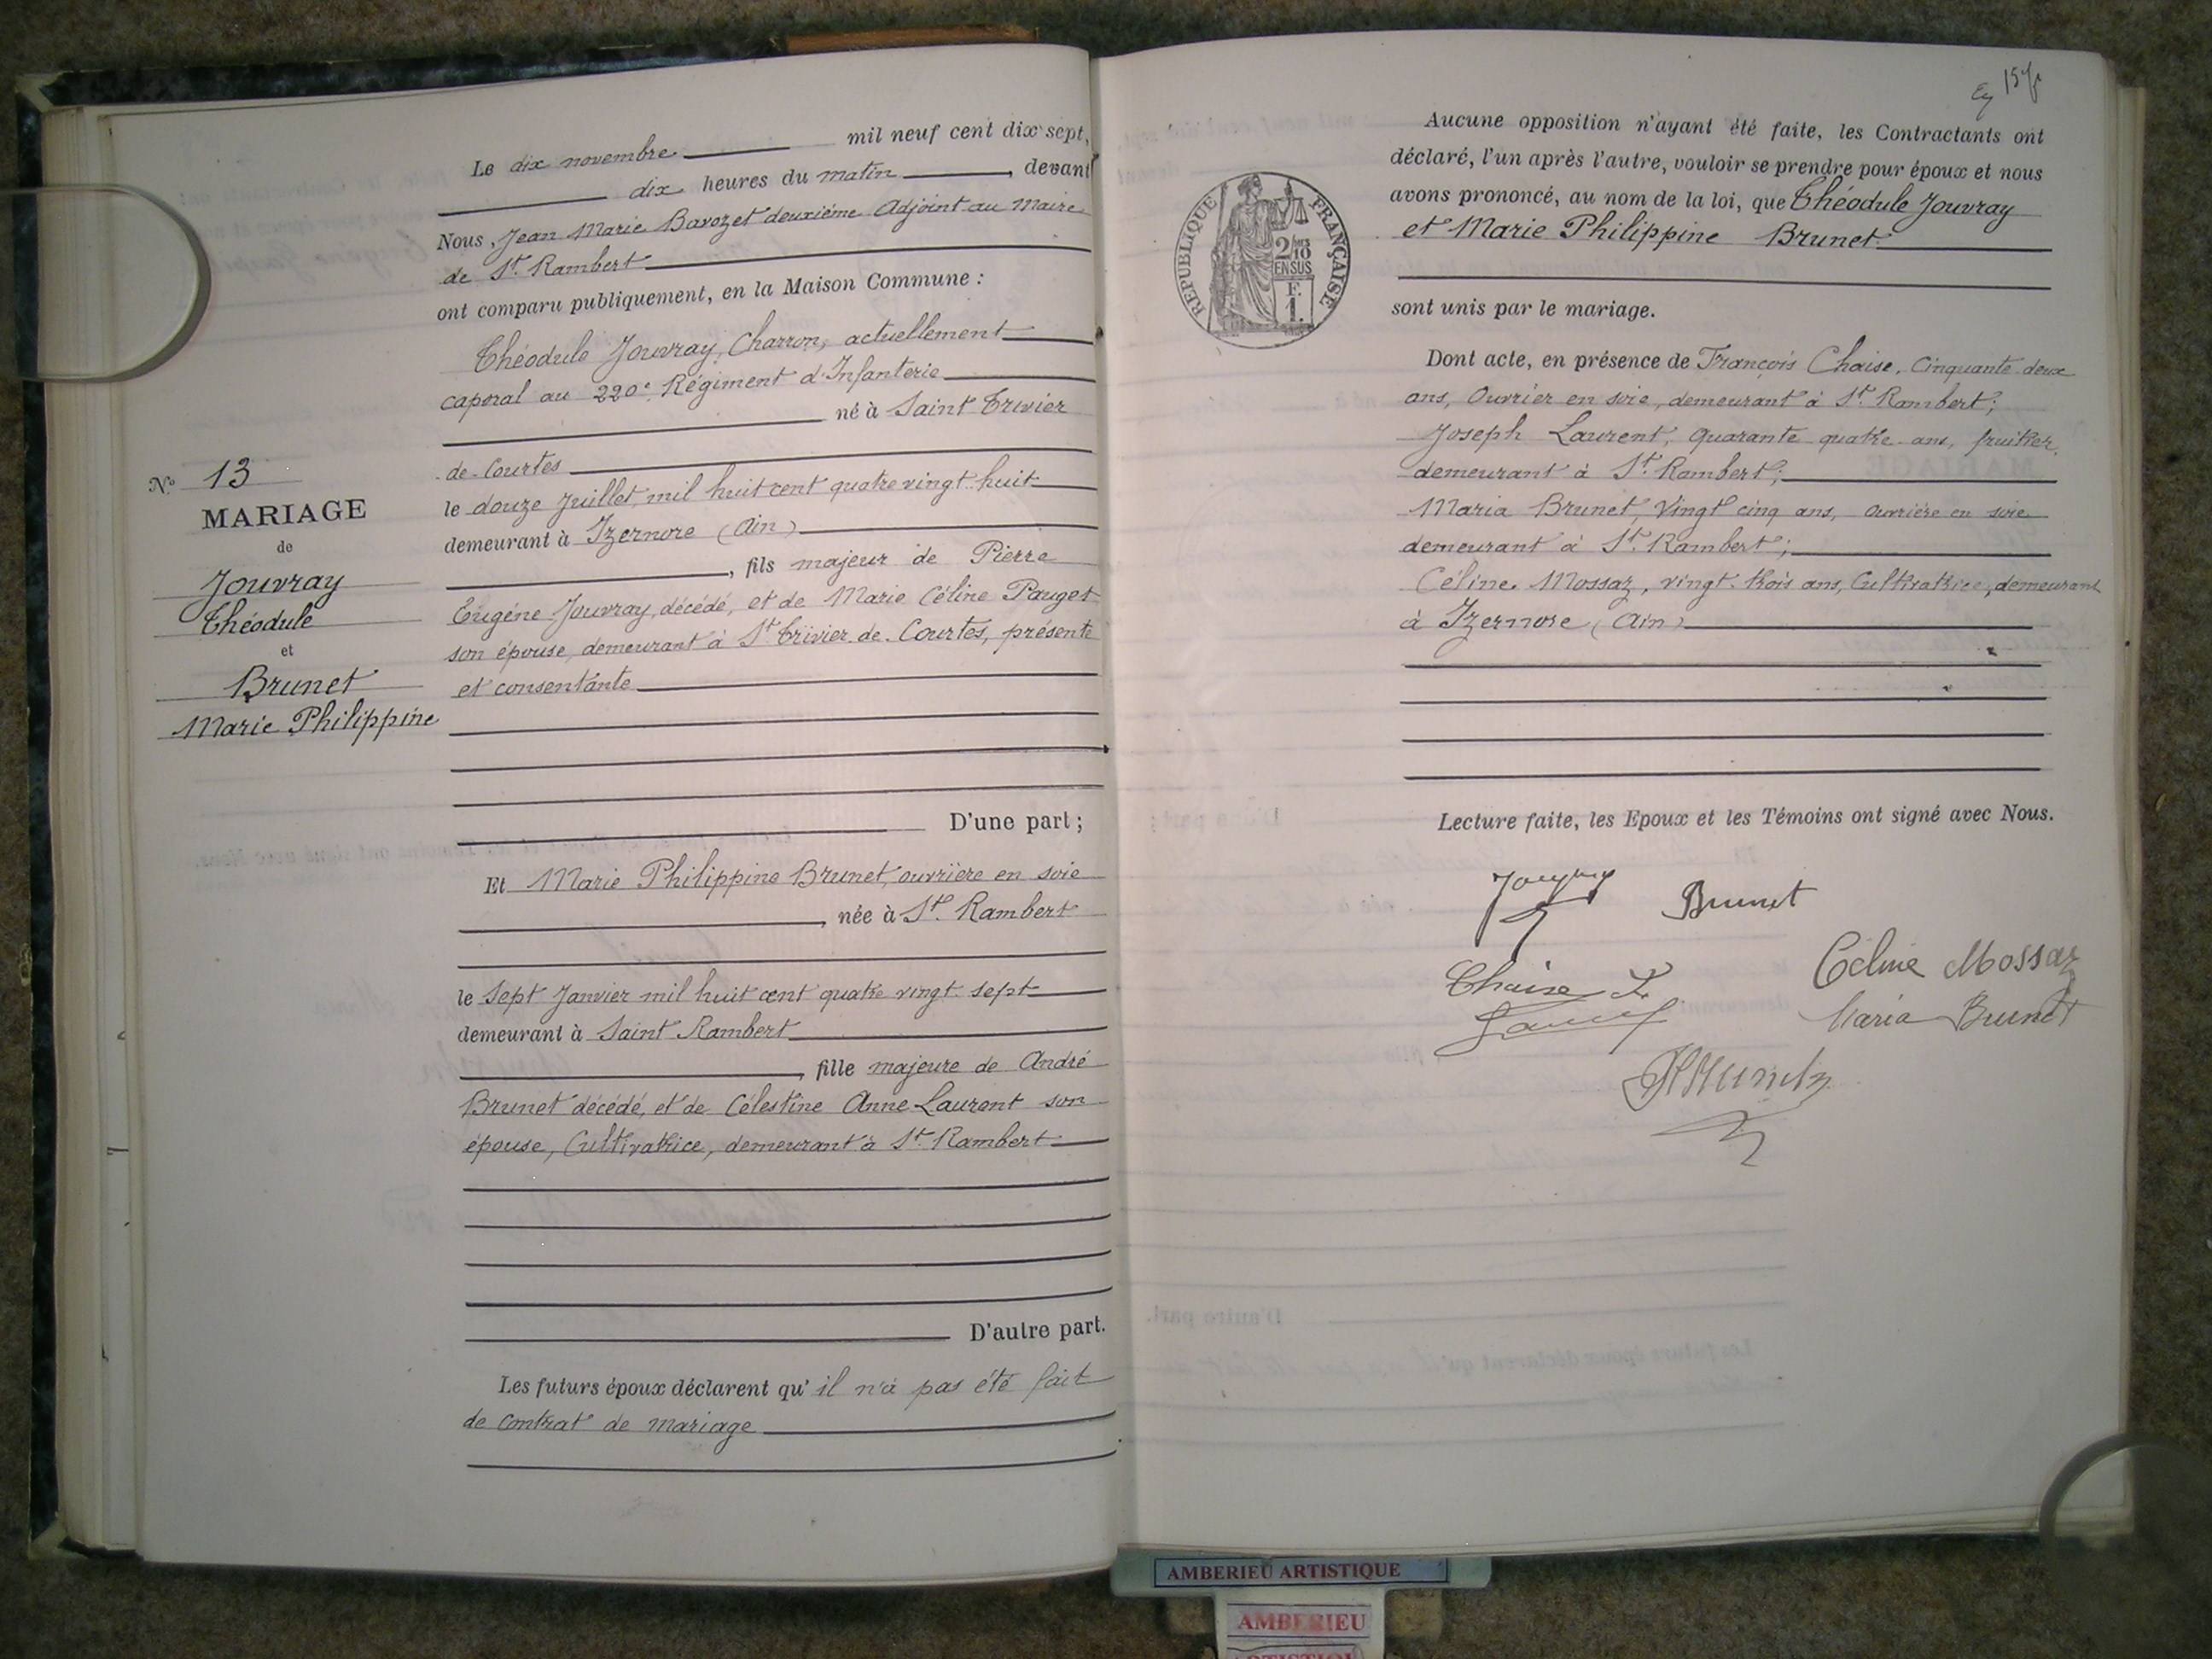 Le dix novembre mil neuf cent dix sept,
dix heures du matin, devant
Nous, Jean Marie Bavozet deuxième Adjoint au Maire
de St. Rambert
ont comparu publiquement, en la Maison Commune :
Théodule Jouvray, Charron, actuellement
caporal au 220e Régiment d'Infanterie
né à Saint Trivier
de Courtes
le douze Juillet mil huit cent quatre vingt huit
demeurant à Izernore (Ain)
, fils majeur de Pierre
Eugène Jouvray, décédé, et de Marie Céline Pauget
son épouse, demeurant à St. Trivier de Courtes, présente
et consentante
D'une part ;
Et Marie Philippine Brunet, ouvrière en soie
, née à St. Rambert
le sept Janvier mil huit cent quatre vingt sept
demeurant à Saint Rambert
, fille majeure de André
Brunet décédé, et de Célestine Anne Laurent son
épouse, Cultivatrice, demeurant à St. Rambert
D'autre part.
Les futurs époux déclarent qu' il n'a pas été fait
de contrat de mariage
No 13
MARIAGE
de
Jouvray
Théodule
et
Brunet
Marie Philippine
Aucune opposition n'ayant été faite, les Contractants ont
déclaré, l'un après l'autre, vouloir se prendre pour époux et nous
avons prononcé, au nom de la loi, que Théodule Jouvray
et Marie Philippine Brunet
sont unis par le mariage.
Dont acte, en présence de François Chaise, Cinquante deux
ans, Ouvrier en soie, demeurant à St. Rambert ;
Joseph Laurent, Quarante quatre ans, fruitier,
demeurant à St. Rambert ;
Maria Brunet, Vingt cinq ans, ouvrière en soie
demeurant à St. Rambert ;
Céline Mossaz, vingt trois ans, Cultivatrice, demeurant
à Izernore (Ain)
Lecture faite, les Epoux et les Témoins ont signé avec Nous.
Jouvray Brunet
Chaise F.
Céline Mossaz
Maria Brunet
REPUBLIQUE FRANÇAISE
2/10
EN SUS
F.
1.
AMBERIEU ARTISTIQUE
AMBERIEU